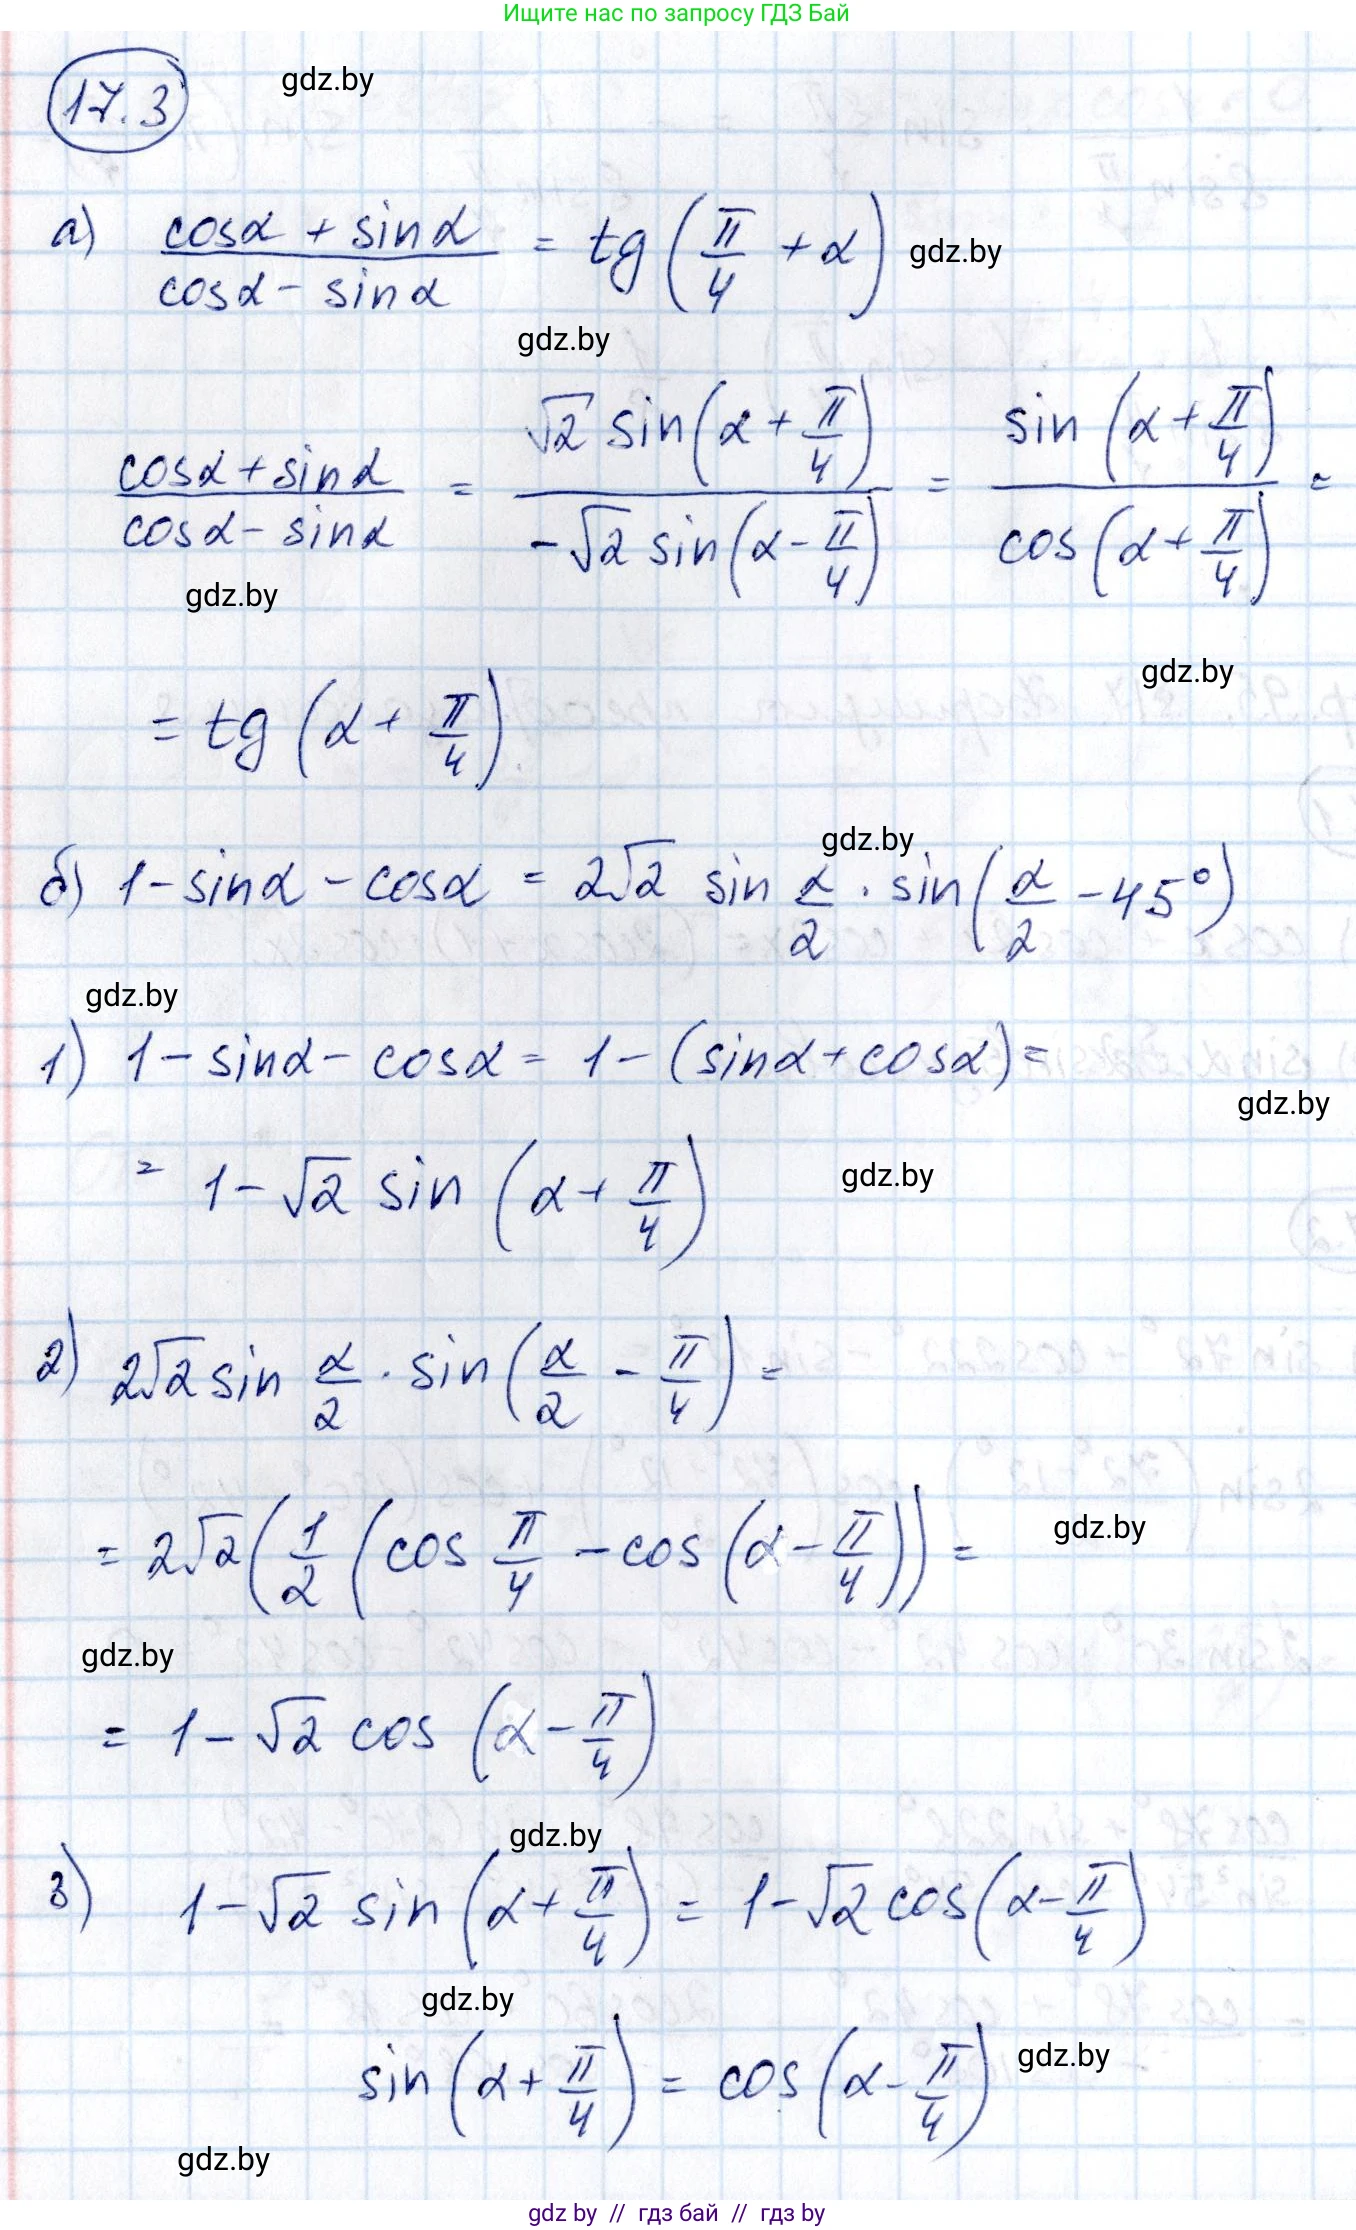 Ищите нас по запросу ГДЗ Бай
17.3
gdz.by
а) (cosα + sinα)/(cosα - sinα) = tg(π/4 + α)
gdz.by
gdz.by
(cosα + sinα)/(cosα - sinα) = (√2 sin(α + π/4))/(-√2 sin(α - π/4)) = (sin(α + π/4))/(cos(α + π/4)) =
gdz.by
gdz.by
= tg(α + π/4)
gdz.by
б) 1 - sinα - cosα = 2√2 sin α/2 · sin(α/2 - 45°)
gdz.by
1) 1 - sinα - cosα = 1 - (sinα + cosα) =
gdz.by
= 1 - √2 sin(α + π/4)
gdz.by
2) 2√2 sin α/2 · sin(α/2 - π/4) =
= 2√2(1/2(cos π/4 - cos(α - π/4)) =
gdz.by
gdz.by
= 1 - √2 cos(α - π/4)
gdz.by
3) 1 - √2 sin(α + π/4) = 1 - √2 cos(α - π/4)
gdz.by
sin(α + π/4) = cos(α - π/4)
gdz.by
gdz.by
gdz by // гдз бай // гдз by